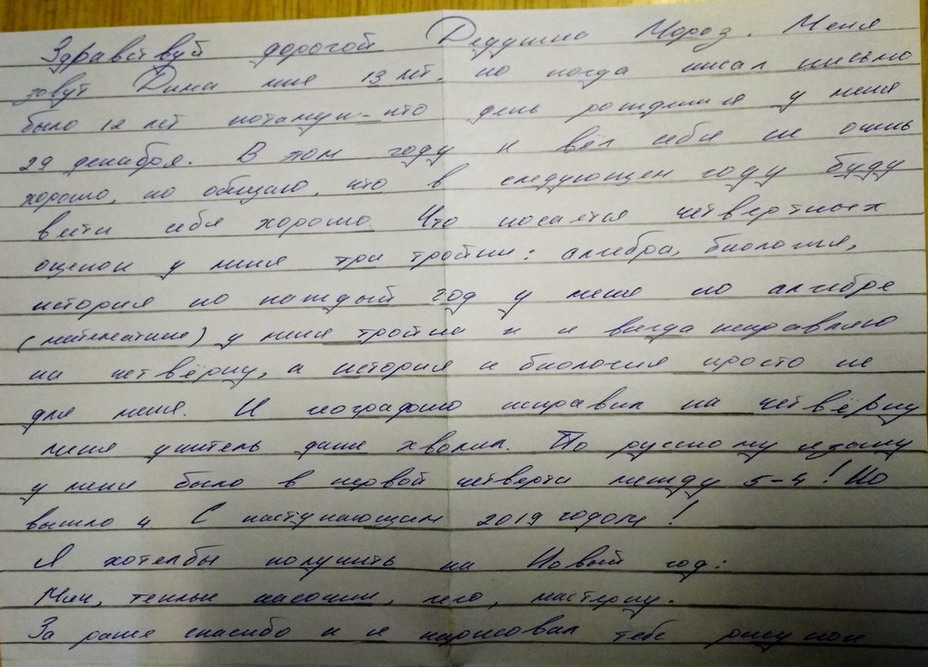 Здравствуй дорогой Дедушка Мороз. Меня
зовут Дима мне 13 лет. но когда писал письмо
было 12 лет потамук-что день рождения у меня
29 декабря. В том году я вёл себя не очень
хорошо, но обищаю, что в следующем году буду
вести себя хорошо. Что косается четвертных
оценок у меня три тройки: алгебра, биология,
история но каждый год у меня по алгебре
(математике) у меня тройка и я всегда исправляю
на четвёрку, а история и биология просто не
для меня. И географию исправил на четвёрку
меня учитель даже хвалил. По русскому языку
у меня было в первой четверти между 5-4! Но
вышло 4 С наступающим 2019 годом!
Я хотелбы получить на Новый год:
Мяч, теплые насочки, лего, мастерку.
За ранее спасибо и я нарисовал тебе рисунок